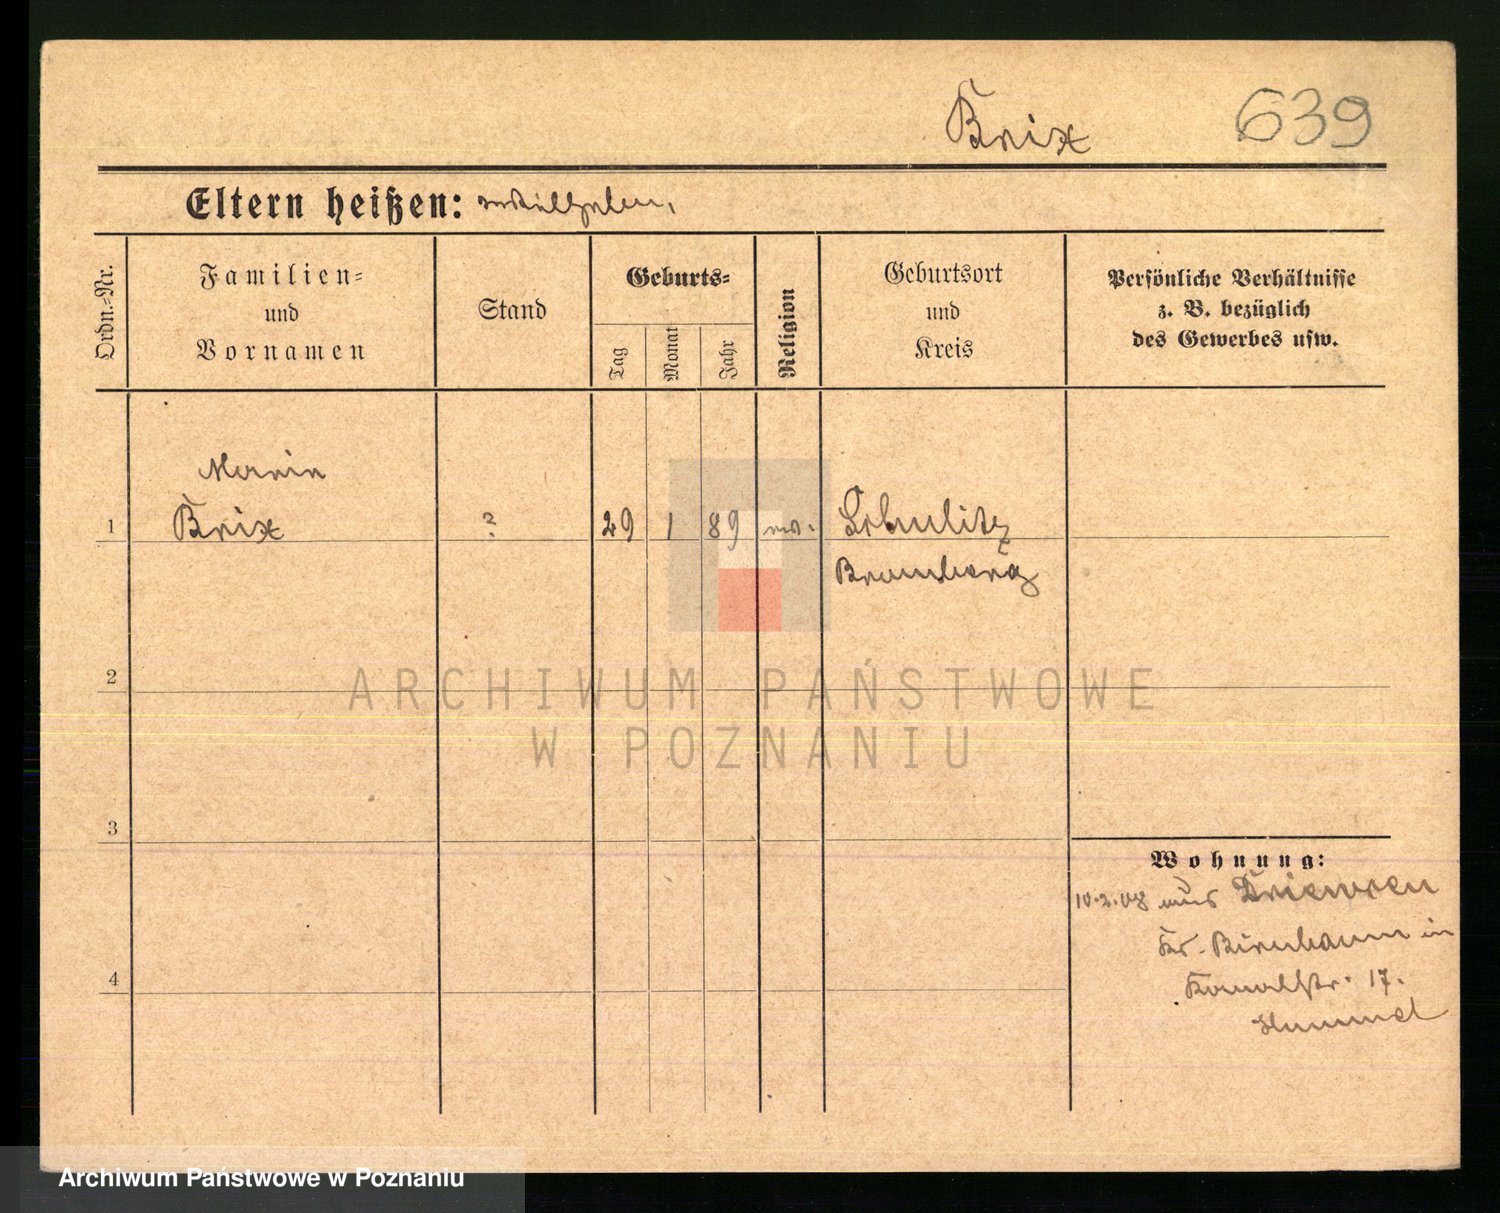 Brix 639
Eltern heißen: Wilhelm,
Ordn.-Nr.
Familien-
und
Vornamen
Stand
Geburts-
Tag
Monat
Jahr
Religion
Geburtsort
und
Kreis
Persönliche Verhältnisse
z. B. bezüglich
des Gewerbes usw.
Maria
1 Brix ? 29 1 89 ev. Schulitz
Bromberg
2
3
4
Wohnung:
10.2.08 aus
Kr. Birnbaum in
17.
Hummel
ARCHIWUM PAŃSTWOWE
W POZNANIU
Archiwum Państwowe w Poznaniu